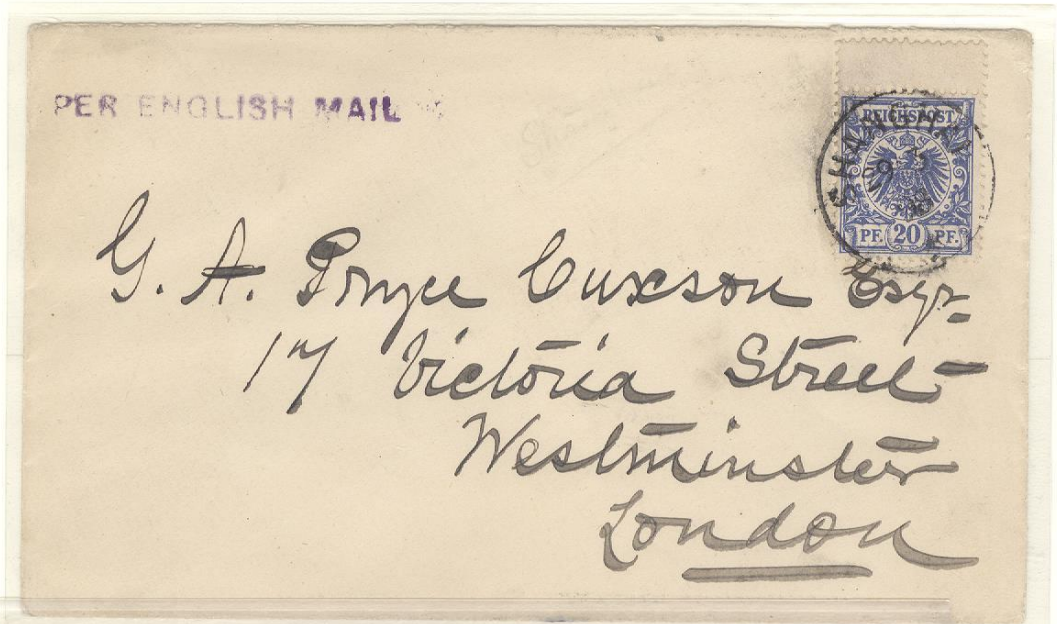 PER ENGLISH MAIL
REICHSPOST
SHANGHAI
29
PF. 20 PF.
G. A. Pryce Cuxson Esqr.
17 Victoria Street
Westminster
London